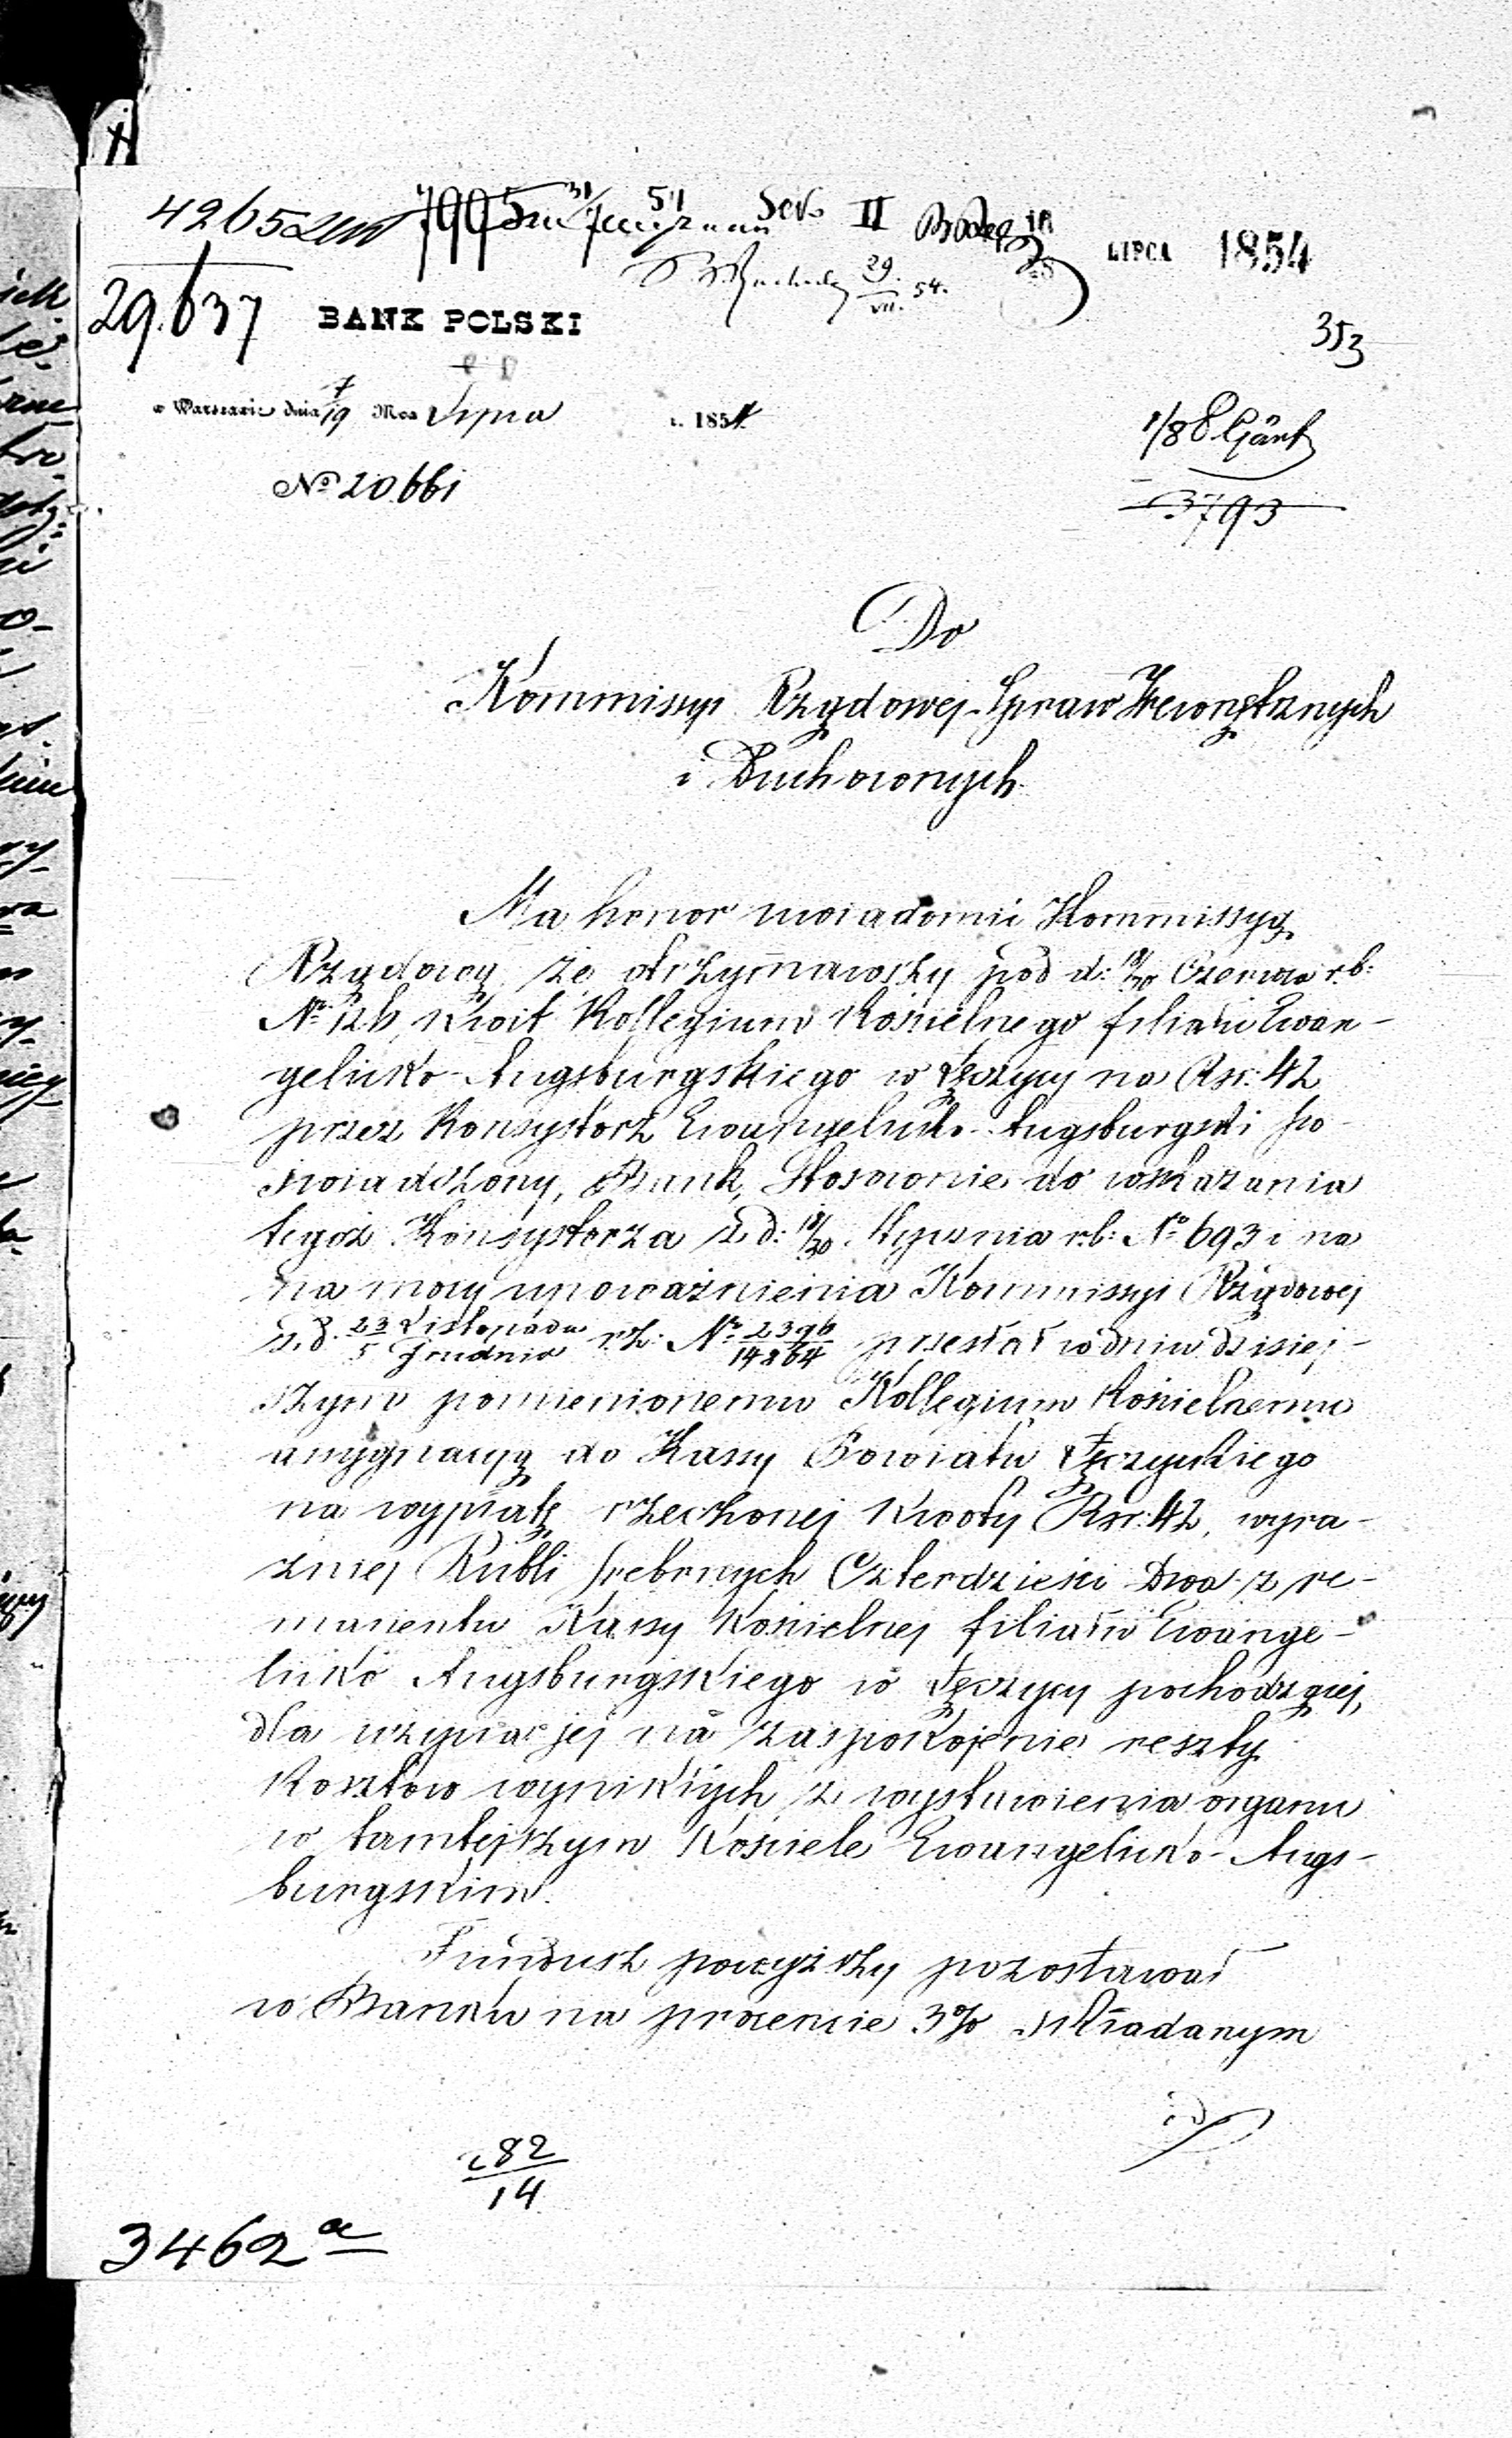 4265
Sek II
LIPCA 1854
29/VII. 54.
29.637 BANK POLSKI
353
w Warszawie dnia 7/19 Mca Lipca r. 1854
1/8 8 Gärt
No 20.661
3793
Do
Kommissyi Rządowej Spraw Wewnętrznych
i Duchownych
Ma honor uwiadomić Kommissyą
Rządową, że otrzymawszy pod d: 18/30 Czerwca r.b:
No 126, kwit Kollegium Kościelnego filiału Ewan-
gelicko-Augsburgskiego w Łęczycy na Rsr: 42
przez Konsystorz Ewangelicko-Augsburgski po-
świadczony, Bank, stosownie do wskazania
tegoż Konsystorza z d: 18/30 Stycznia r.b: No 693 i na
na mocy upoważnienia Kommissyi Rządowej
z d. 23 Listopada/5 Grudnia r.z: No 2396/14864 przesłał w dniu dzisiej-
szym pomienionemu Kollegium Kościelnemu
assygnacyą do Kassy Powiatu Łęczyckiego
na wypłatę rzeczonej kwoty Rsr: 42, wyra-
źniej Rubli srebrnych Czterdzieści Dwa z re-
manentu Kassy Kościelnej filiału Ewange-
licko Augsburgskiego w Łęczycy pochodzącej,
dla użycia jej na zaspokojenie reszty
kosztów wynikłych z wystawienia organu
w tamtejszym Kościele Ewangelicko-Augs-
burgskim.
Fundusz powyższy pozostawał
w Banku na procencie 3% składanym
282/14
3462 a